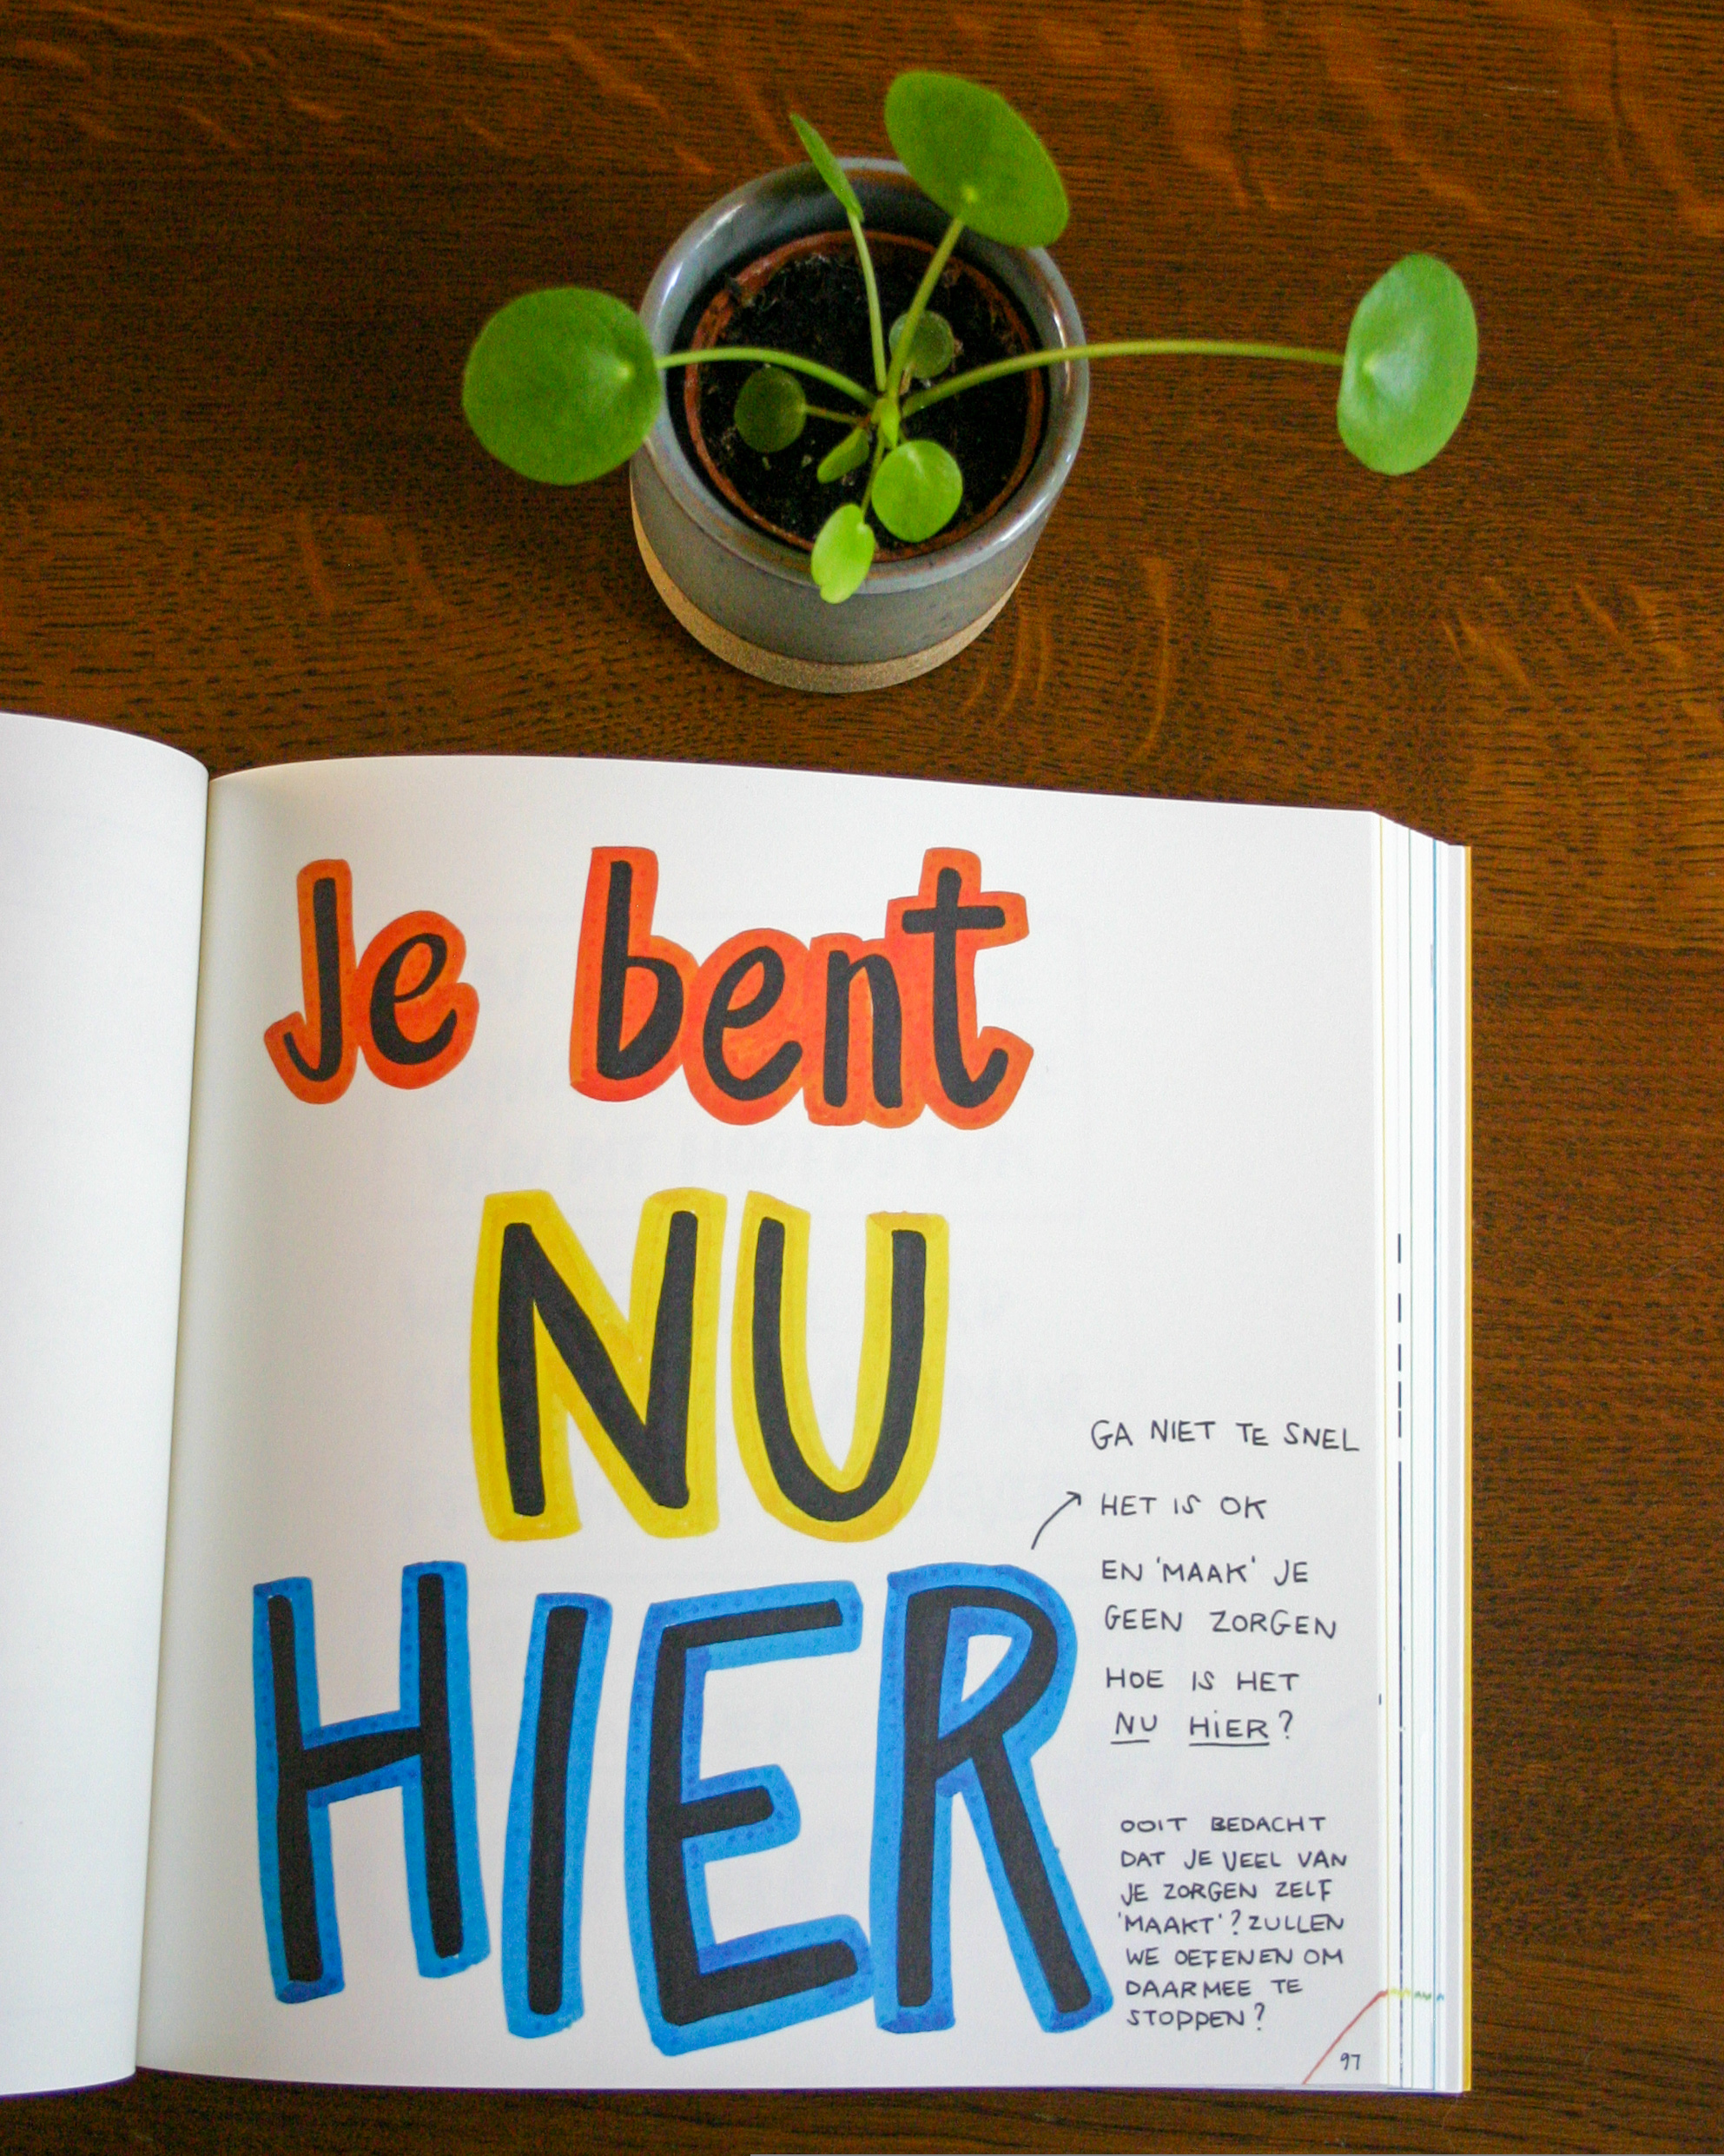 Je bent
NU
HIER
GA NIET TE SNEL
HET IS OK
EN 'MAAK' JE
GEEN ZORGEN
HOE IS HET
NU HiER?
OOIT BEDACHT
DAT JE VEEL VAN
JE ZORGEN ZELF
'MAAKT'? ZULLEN
WE OEFENEN OM
DAARMEE TE
STOPPEN?
97